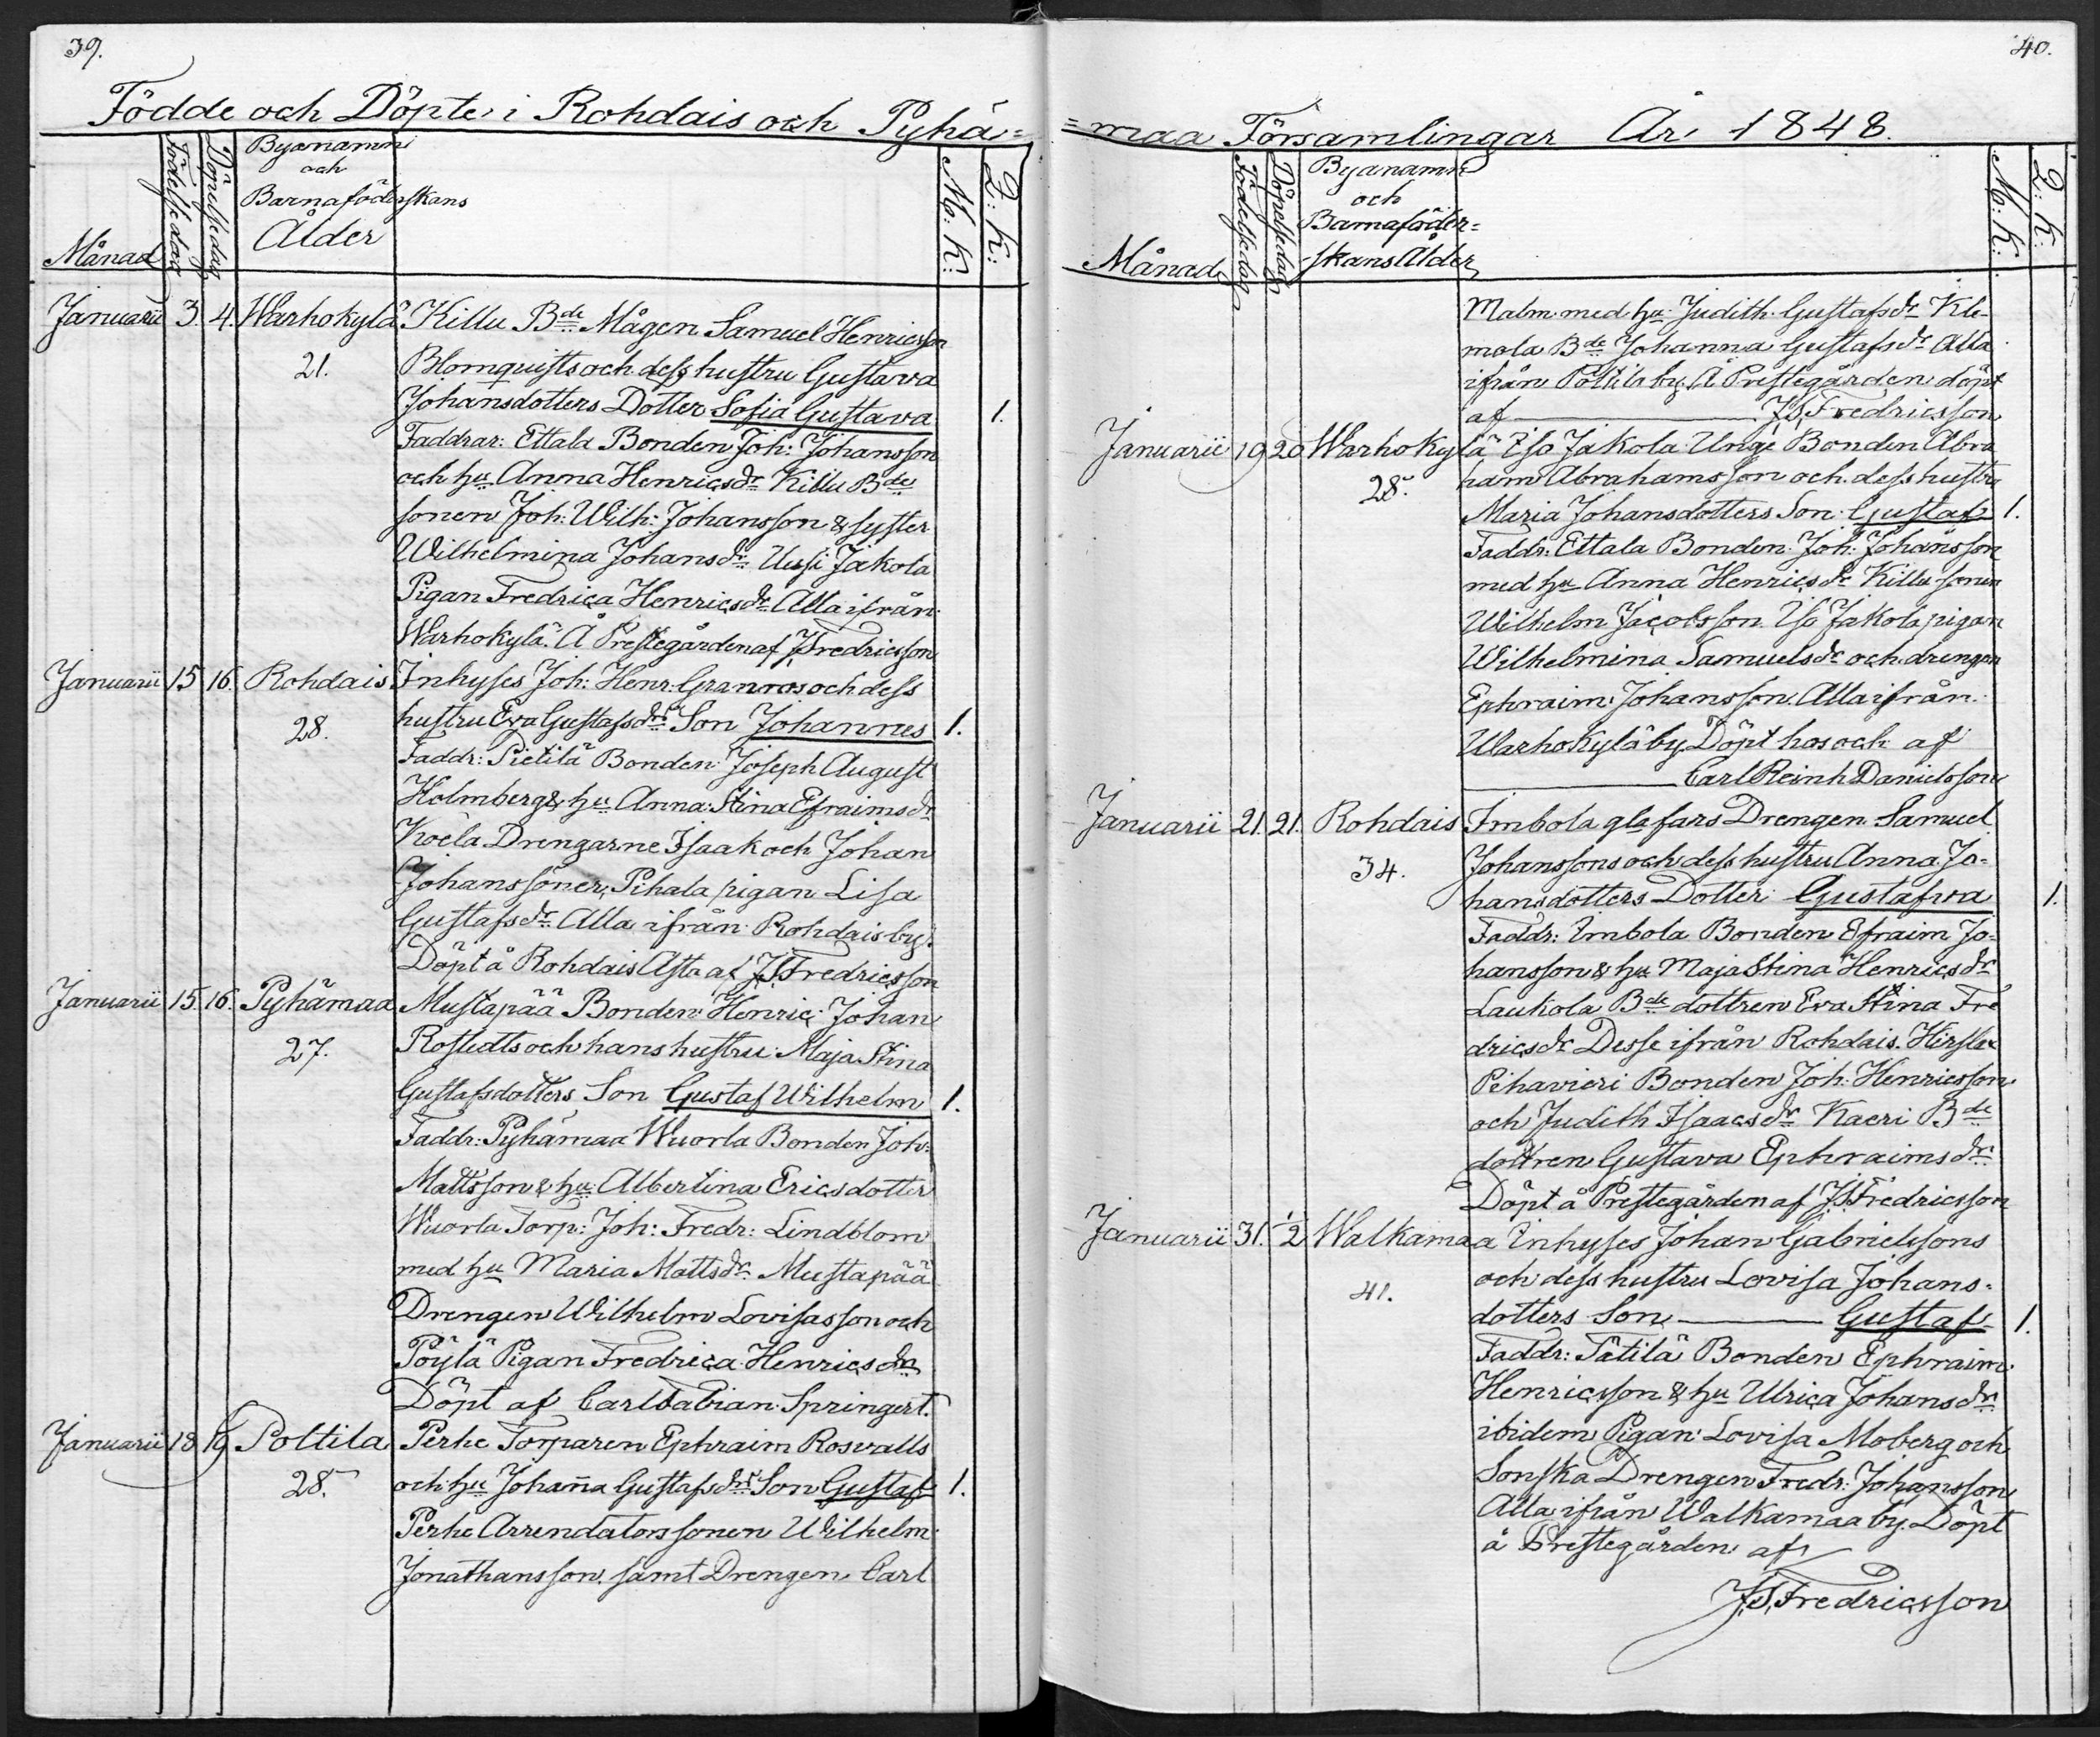 39.
Födde och Döpte i Rohdais och Pyhä=
Månad
Födelsedag
Döpelsedag
Byanamn
och
Barnaföderskans
Ålder
M: K:
Q: K:
Januarii 3. 4. Warhokylä Killu Bde Mågen Samuel Henricsson
21. Blomquists och dess hustru Gustava
Johansdotters Dotter Sofia Gustava 1.
Faddrar: Ettala Bonden Joh: Johansson
och hu Anna Henricsdr Killu Bde
sonen Joh: Wilh: Johansson & syster
Wilhelmina Johansdr Uusi Jakola
Pigan Fredrica Henricsdr Alla ifrån
Warhokylä. Å Prestegården af JS Fredricsson
Januarii 15 16 Rohdais Inhyses Joh: Henr: Granroos och dess
28. hustru Eva Gustafsdrs Son Johannes 1.
Faddr: Pietilä Bonden Joseph August
Holmberg & hu Anna Stina Efraimsdr
Koela Drengarne Isaak och Johan
Johanssöner, Pihala pigan Lisa
Gustafsdr Alla ifrån Rohdais by.
Döpt å Rohdais Asta af JS Fredricsson
Januarii 15. 16. Pyhämaa Mustapää Bonden Henric Johan
27. Rostedts och hans hustru Maja Stina
Gustafsdotters Son Gustaf Wilhelm 1.
Faddr: Pyhämaa Wuorla Bonden Joh:
Mattsson & hu Albertina Ericsdotter
Wuorla Torp: Joh: Fredr: Lindblom
med hu Maria Mattsdr Mustapää
Drengen Wilhelm Lovisasson och
Pöylä Pigan Fredrica Henricsdr
Döpt af Carl Fabian Springert.
Januarii 18 19 Poltila Perhe Torparen Ephraim Rosvalls
28. och hu Johan̄a Gustafsdrs Son Gustaf 1.
Perhe Arrendatorssonen Wilhelm
Jonathansson, samt Drengen Carl
40.
=maa Församlingar År 1848.
Månad
Födelsedag
Döpelsedag
Byanamn
och
Barnaföder=
skans Ålder
M: K:
Q: K:
Malm med hu Judith Gustafsdr Kle-
mola Bde Johanna Gustafsdr Alla
ifrån Poltila by. Å Prestegården döpt
af JS Fredricsson
Januarii 19 20 Warhokylä Iso Jakola Unge Bonden Abra
28. ham Abrahamsson och dess hustru
Maria Johansdotters Son Gustaf 1.
Faddr: Ettala Bonden Joh: Johansson
med hu Anna Henricsdr Killu sonen
Wilhelm Jacobsson Iso Jakola pigan
Wilhelmina Samuelsdr och drengen
Ephraim Johansson. Alla ifrån
Warhokylä by Döpt hos och af
Carl Reinh Danielsson
Januarii 21. 21. Rohdais Imbola gla fars Drengen Samuel
34. Johanssons och dess hustru Anna Jo=
hansdotters Dotter Gustafva 1.
Faddr: Imbola Bonden Efraim Jo-
hansson & hu Maja Stina Henricsdr
Laukola Bde dottren Eva Stina Fre
dricsdr Desse ifrån Rohdais. Hirslax
Pihavieri Bonden Joh: Henricsson
och Judith Isaacsdr Kaeri Bde
dottren Gustava Ephraimsdr
Döpt å Prestegården af JS Fredricsson
Januarii 31. 1/2 Walkamaa Inhyses Johan Gabrielssons
41. och dess hustru Lovisa Johans-
dotters Son Gustaf 1.
Faddr: Tätilä Bonden Ephraim
Henricsson & hu Ulrica Johansdr
ibidem Pigan Lovisa Moberg och
Sonska Drengen Fredr: Johansson
Alla ifrån Walkamaa by. Döpt
å Prestegården af
JS Fredricsson